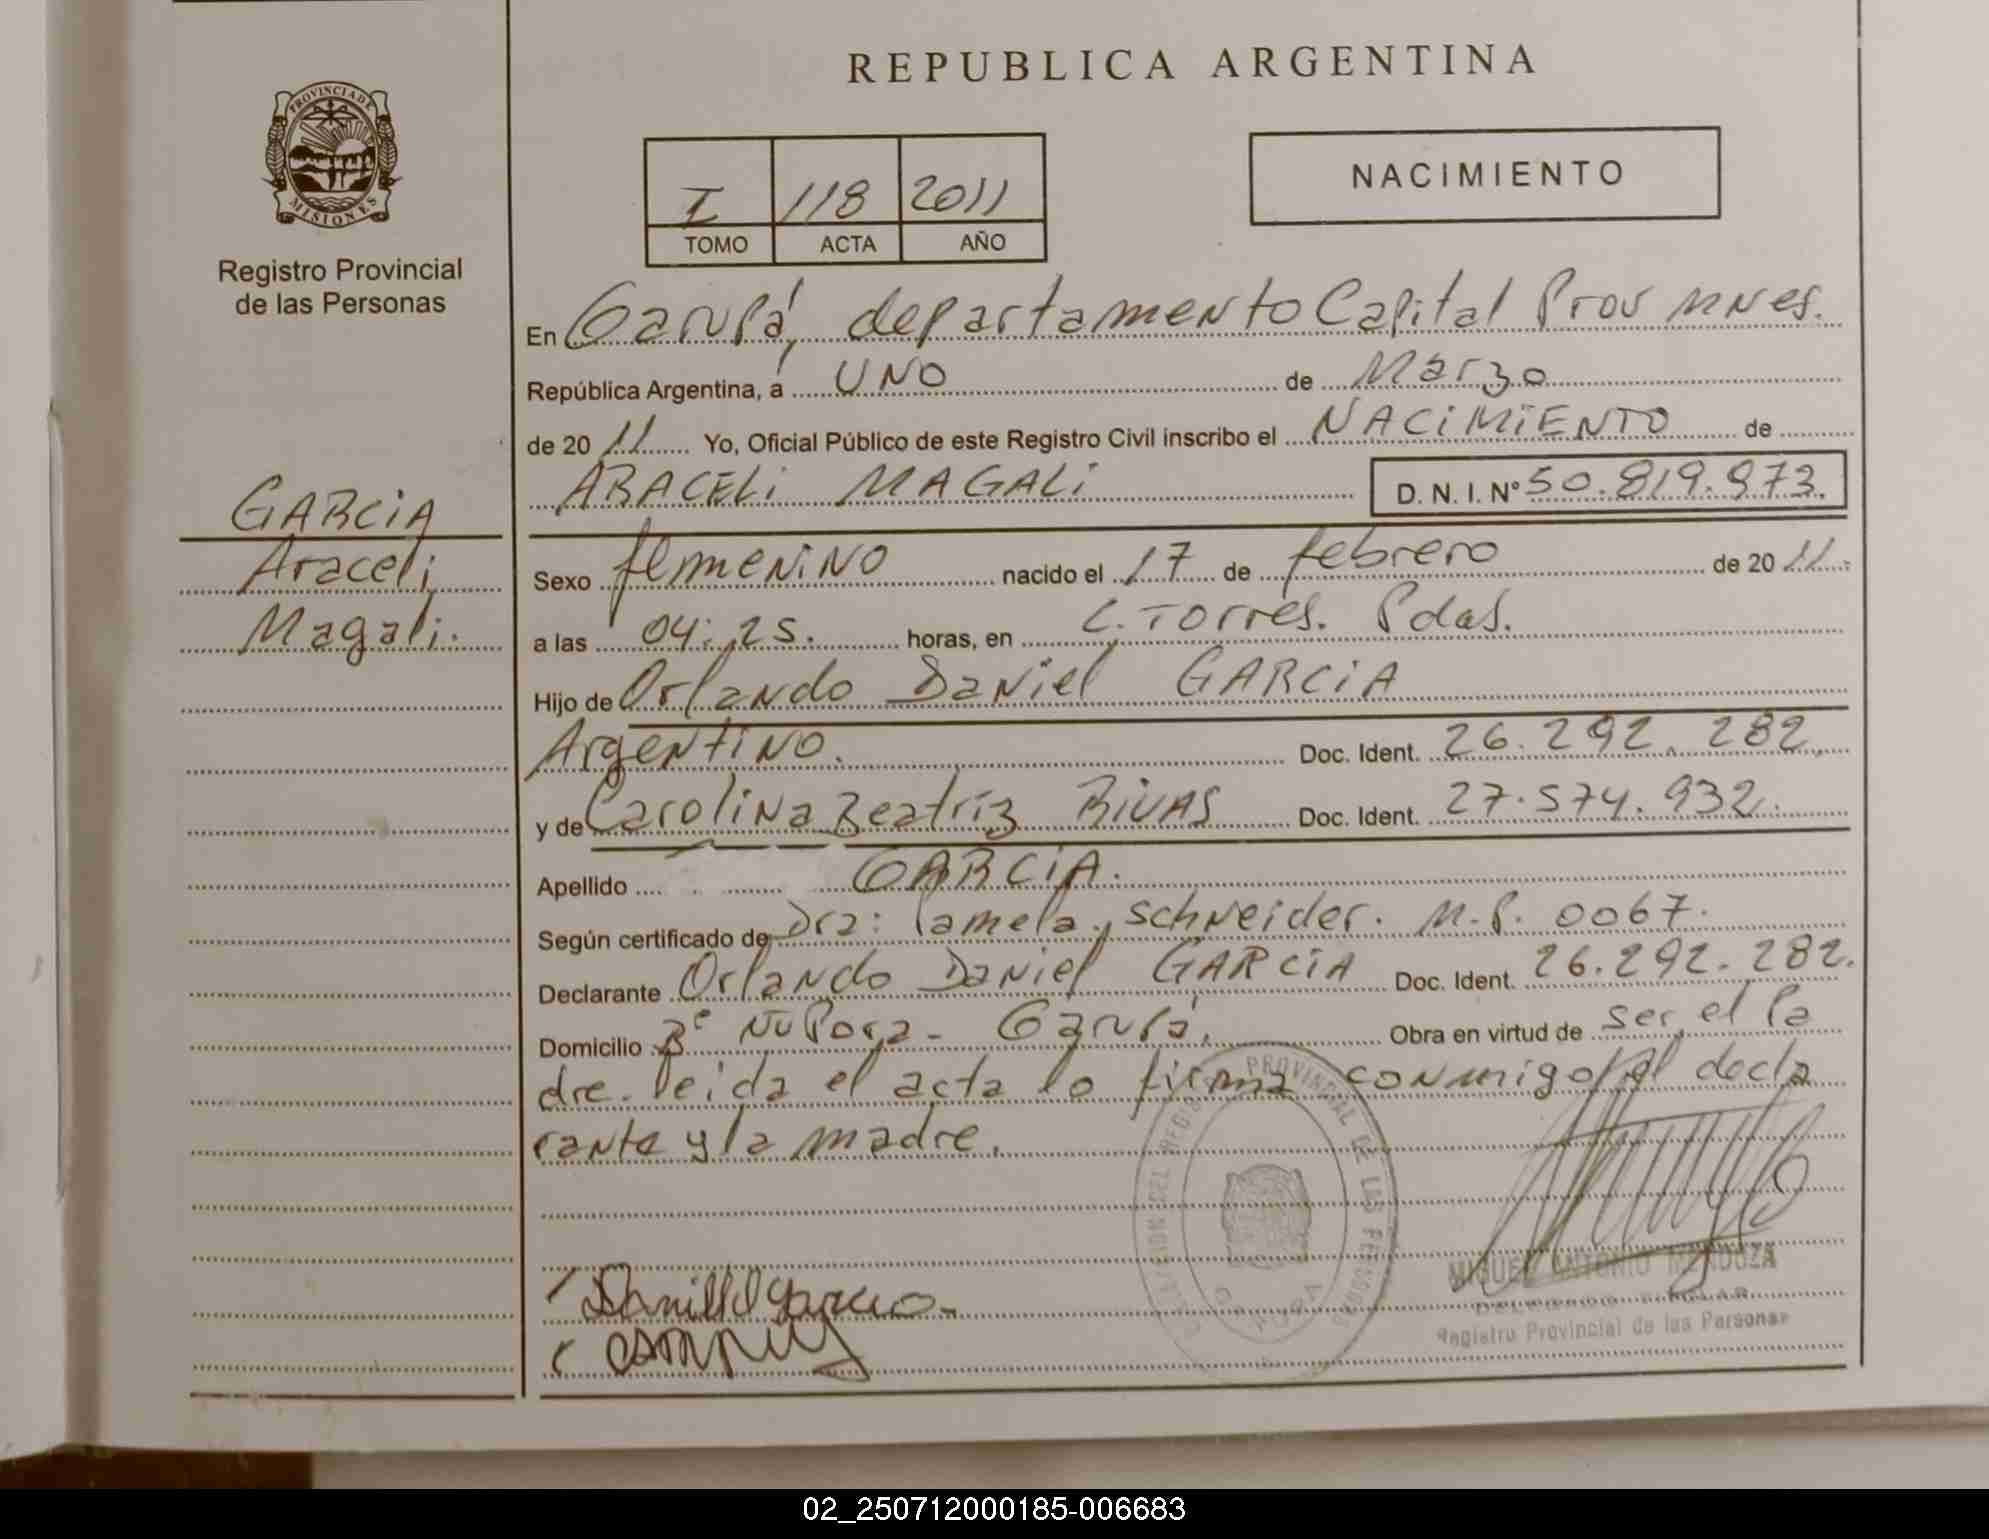 REPUBLICA ARGENTINA
PROVINCIA DE
MISIONES
Registro Provincial
de las Personas
NACIMIENTO
I 118 2011
TOMO ACTA AÑO
En Garupá, departamento Capital Prov Mnes.
República Argentina, a UNO de Marzo
de 20 11 Yo, Oficial Público de este Registro Civil inscribo el NACIMIENTO de
ARACELI MAGALI D. N. I. Nº 50.819.973.
GARCIA
Araceli
Magali.
Sexo femenino nacido el 17 de febrero de 20 11.
a las 04:25. horas, en C. Torres. Pdas.
Hijo de Orlando Daniel GARCIA
Argentino. Doc. Ident. 26.292.282.
y de Carolina Beatríz RIVAS Doc. Ident. 27.574.932.
Apellido GARCIA.
Según certificado de Dra: Pamela, Schneider. M.P. 0067.
Declarante Orlando Daniel GARCIA Doc. Ident. 26.292.282.
Domicilio Bº Ñu Pora - Garupá. Obra en virtud de ser el Pa
dre. leida el acta lo firma conmigo el decla
rante y la madre.
PROVINCIAL DE LAS PERSONAS
GARUPA
MIGUEL ANTONIO MENDOZA
DELEGADO TITULAR
Registro Provincial de las Personas
02_250712000185-006683